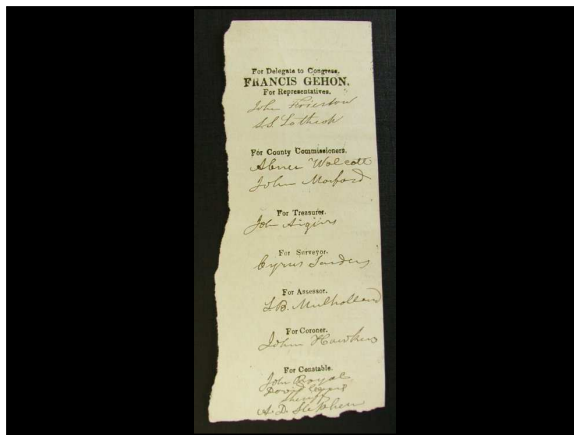 For Delegate to Congress,
FRANCIS GEHON.
For Representatives,
John
S.S. Lathrop
For County Commissioners.
Abner Wolcott
John Morford
For Treasurer.
John
For Surveyor.
Cyrus Sanders
For Assessor.
S.B. Mulholland
For Coroner.
John Hawkins
For Constable.
John Royal
David
Sheriff
A. D. Stephen